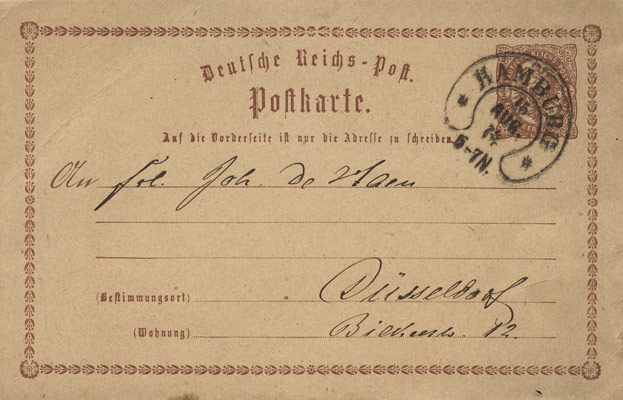 Deutsche Reichs-Post.
Postkarte.
Auf die Vorderseite ist nur die Adresse zu schreiben.
HAMBURG
15
AUG.
74
5-7N.
An Frl. Joh. de Haen
(Bestimmungsort) Düsseldorf
(Wohnung) 12